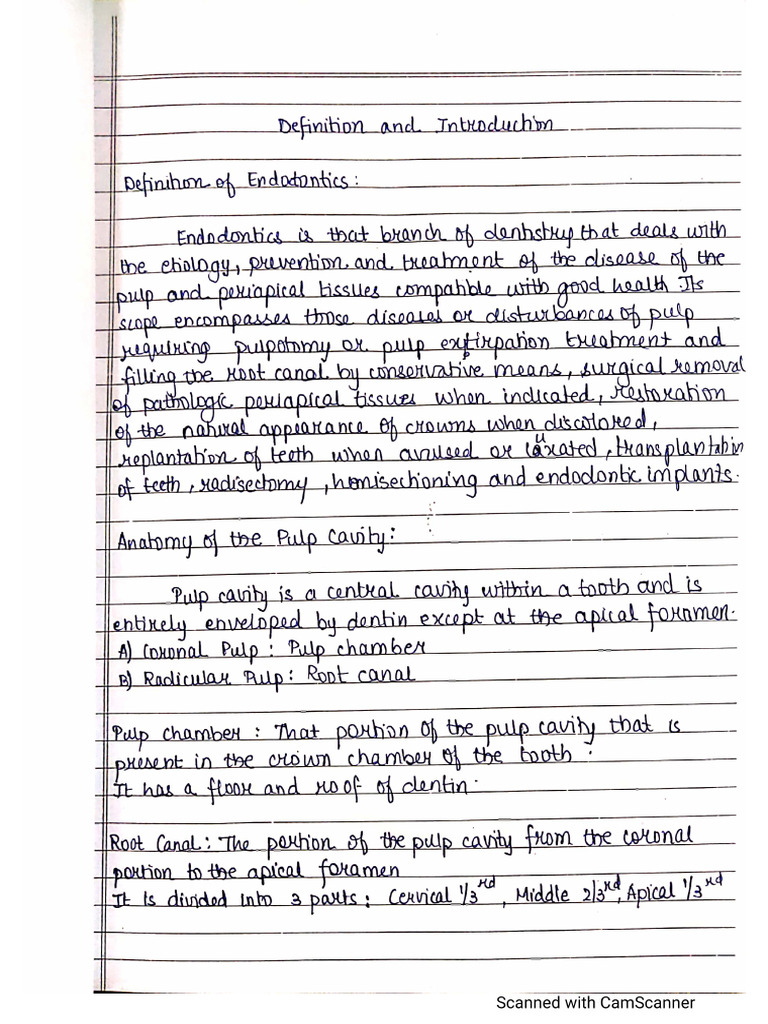 Definition and Introduction
Definition of Endodontics:
Endodontics is that branch of dentistry that deals with
the etiology, prevention and treatment of the disease of the
pulp and periapical tissues compatible with good health Its
scope encompasses those diseases or disturbances of pulp
requiring pulpotomy or pulp extirpation treatment and
filling the root canal by conservative means, surgical removal
of pathologic periapical tissues when indicated, restoration
of the natural appearance of crowns when discolored,
replantation of teeth when avulsed or luxated, transplantation
of teeth, radisectomy, hemisectioning and endodontic implants.
Anatomy of the Pulp Cavity:
Pulp cavity is a central cavity within a tooth and is
entirely enveloped by dentin except at the apical foramen.
A) Coronal Pulp: Pulp chamber
B) Radicular Pulp: Root canal
Pulp chamber: That portion of the pulp cavity that is
present in the crown chamber of the tooth.
It has a floor and roof of dentin.
Root Canal: The portion of the pulp cavity from the coronal
portion to the apical foramen
It Is divided into 3 parts: Cervical 1/3rd, Middle 2/3rd, Apical 1/3rd
Scanned with CamScanner